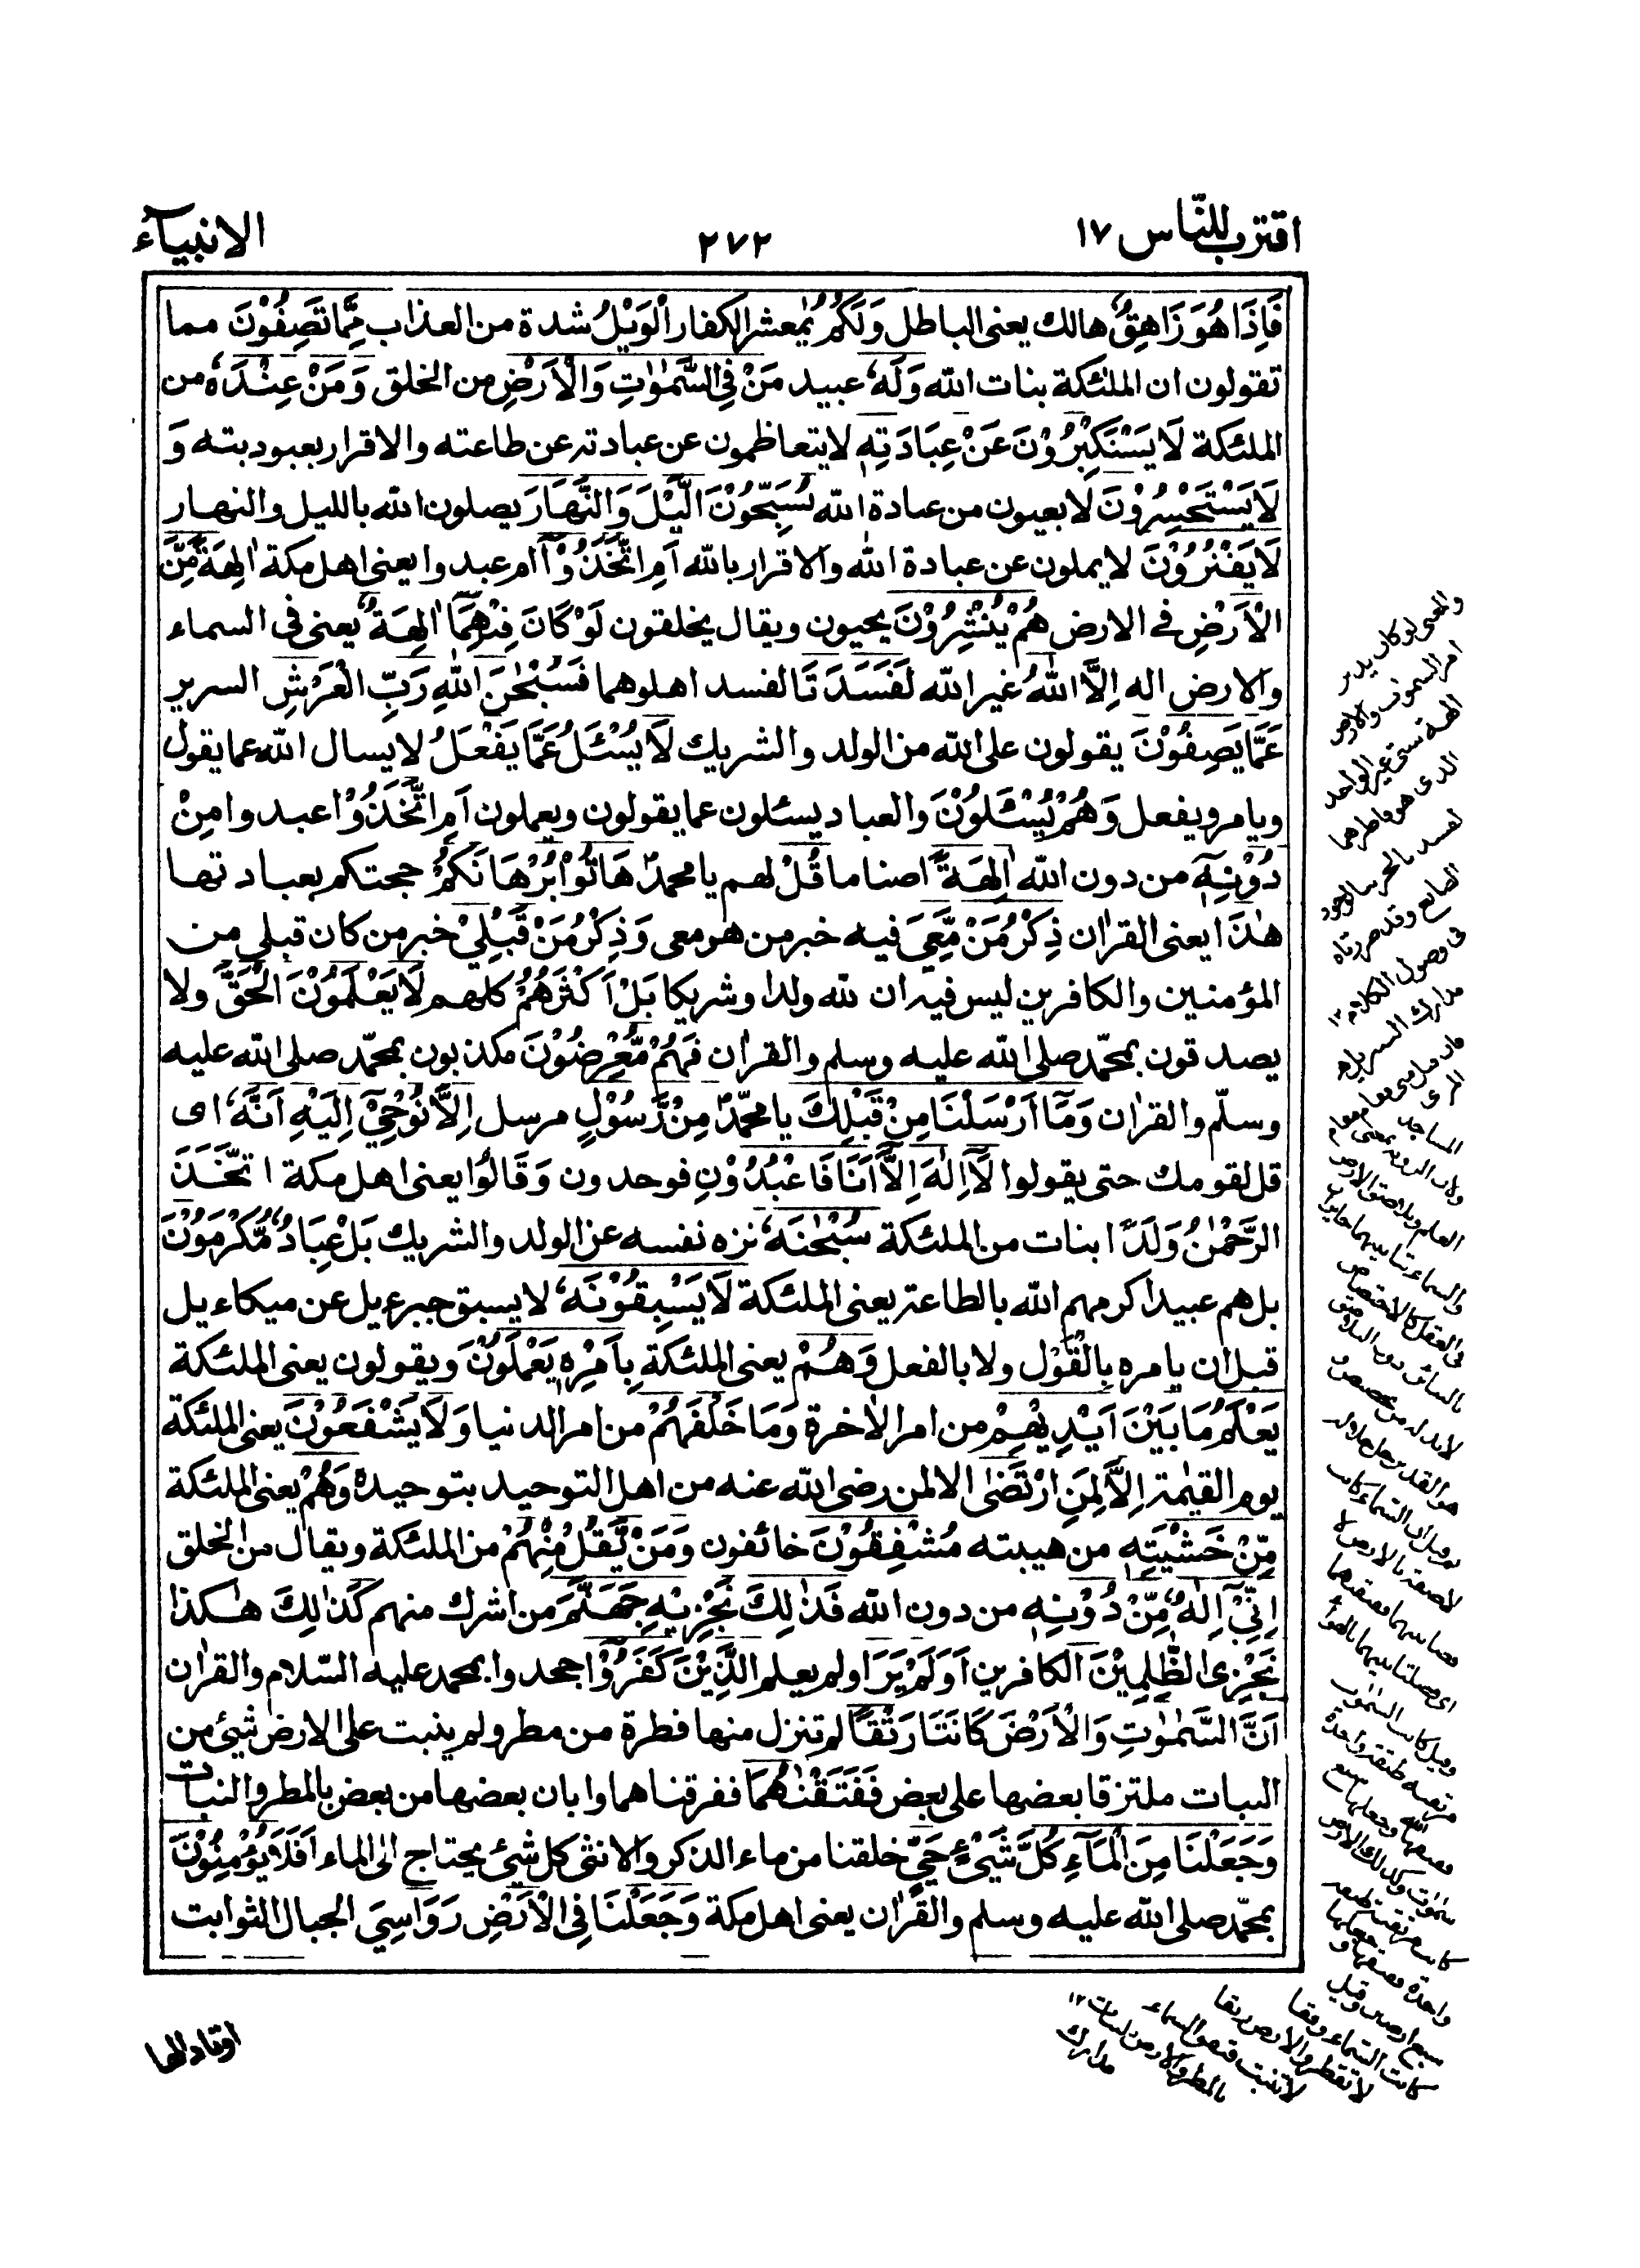 اقترب للنّاس ١٧
٢٧٢
الانبيآء
فَاِذَا هُوَ زَاهِقٌ هالك يعنى الباطل وَلَكُمُ يٰمعشر الكفار الْوَيْلُ شدة من العذاب مِمَّا تَصِفُوْنَ مما
تقولون ان الملئكة بنات الله وَلَهٗ عبيد مَنْ فِى السَّمٰوٰتِ وَالْاَرْضِ من الخلق وَمَنْ عِنْدَهٗ من
الملئكة لَا يَسْتَكْبِرُوْنَ عَنْ عِبَادَتِهٖ لا يتعاظمون عن عبادته عن طاعته والاقرار بعبوديته وَ
لَا يَسْتَحْسِرُوْنَ لا يعيون من عبادة الله يُسَبِّحُوْنَ الَّيْلَ وَالنَّهَارَ يصلون الله بالليل والنهار
لَا يَفْتُرُوْنَ لا يملون عن عبادة الله والاقرار بالله اَمِ اتَّخَذُوْٓا ام عبدوا يعنى اهل مكة اٰلِهَةً مِّنَ
الْاَرْضِ فى الارض هُمْ يُنْشِرُوْنَ يحيون ويقال يخلقون لَوْ كَانَ فِيْهِمَآ اٰلِهَةٌ يعنى فى السماء
والارض اله اِلَّا اللّٰهُ غير الله لَفَسَدَتَا لفسد اهلوهما فَسُبْحٰنَ اللّٰهِ رَبِّ الْعَرْشِ السرير
عَمَّا يَصِفُوْنَ يقولون على الله من الولد والشريك لَا يُسْئَلُ عَمَّا يَفْعَلُ لا يسال الله عما يقول
ويامر ويفعل وَهُمْ يُسْئَلُوْنَ والعباد يسئلون عما يقولون ويعملون اَمِ اتَّخَذُوْا عبدوا مِنْ
دُوْنِهٖٓ من دون الله اٰلِهَةً اصناما قُلْ لهم يا محمدؐ هَاتُوْا بُرْهَانَكُمْ حجتكم بعبادتها
هٰذَا يعنى القراٰن ذِكْرُ مَنْ مَّعِىَ فيه خبر من هو معى وَذِكْرُ مَنْ قَبْلِىْ خبر من كان قبلى من
المؤمنين والكافرين ليس فيه ان لله ولدا وشريكا بَلْ اَكْثَرُهُمْ كلهم لَا يَعْلَمُوْنَ الْحَقَّ ولا
يصدقون بمحمّد صلى الله عليه وسلم والقراٰن فَهُمْ مُّعْرِضُوْنَ مكذبون بمحمّد صلى الله عليه
وسلّم والقراٰن وَمَآ اَرْسَلْنَا مِنْ قَبْلِكَ يا محمدؐ مِنْ رَّسُوْلٍ مرسل اِلَّا نُوْحِىْٓ اِلَيْهِ اَنَّهٗ اى
قل لقومك حتى يقولوا لَآ اِلٰهَ اِلَّآ اَنَا فَاعْبُدُوْنِ فوحدون وَقَالُوْا يعنى اهل مكة اتَّخَذَ
الرَّحْمٰنُ وَلَدًا بنات من الملئكة سُبْحٰنَهٗ نزه نفسه عن الولد والشريك بَلْ عِبَادٌ مُّكْرَمُوْنَ
بل هم عبيد اكرمهم الله بالطاعة يعنى الملئكة لَا يَسْبِقُوْنَهٗ لا يسبق جبرءيل عن ميكاءيل
قبل ان يامره بِالْقَوْلِ ولا بالفعل وَهُمْ يعنى الملئكة بِاَمْرِهٖ يَعْمَلُوْنَ ويقولون يعنى الملئكة
يَعْلَمُ مَا بَيْنَ اَيْدِيْهِمْ من امر الاٰخرة وَمَا خَلْفَهُمْ من امر الدنيا وَلَا يَشْفَعُوْنَ يعنى الملئكة
يوم القيٰمة اِلَّا لِمَنِ ارْتَضٰى الا لمن رضى الله عنه من اهل التوحيد بتوحيده وَهُمْ يعنى الملئكة
مِّنْ خَشْيَتِهٖ من هيبته مُشْفِقُوْنَ خائفون وَمَنْ يَّقُلْ مِنْهُمْ من الملئكة ويقال من الخلق
اِنِّىْٓ اِلٰهٌ مِّنْ دُوْنِهٖ من دون الله فَذٰلِكَ نَجْزِيْهِ جَهَنَّمَ من اشرك منهم كَذٰلِكَ هٰكذا
نَجْزِى الظّٰلِمِيْنَ الكافرين اَوَلَمْ يَرَ اولم يعلم الَّذِيْنَ كَفَرُوْٓا جحدوا بمحمد عليه السّلام والقراٰن
اَنَّ السَّمٰوٰتِ وَالْاَرْضَ كَانَتَا رَتْقًا لم تنزل منها قطرة من مطر ولم ينبت على الارض شيئ من
النبات ملتزقا بعضها على بعض فَفَتَقْنٰهُمَا ففرقناهما وابان بعضها من بعض بالمطر والنبات
وَجَعَلْنَا مِنَ الْمَآءِ كُلَّ شَىْءٍ حَىٍّ خلقنا من ماء الذكر والانثى كل شيئ يحتاج الى الماء اَفَلَا يُؤْمِنُوْنَ
بمحمّد صلى الله عليه وسلم والقراٰن يعنى اهل مكة وَجَعَلْنَا فِى الْاَرْضِ رَوَاسِىَ الجبال الثوابت
اوتادا لها
والمعنى لو كان يدبر
امر السموٰت والارض
الهة شتى غير الواحد
الذى هو فاطرهما
واحدة ففتقها و
سبع ارضين وقيل
كانت السماء رتقا
لا تقطر والارض رتقا
لا تنبت ففتق السماء
بالمطر والارض بالنبات ١٢
مدارك